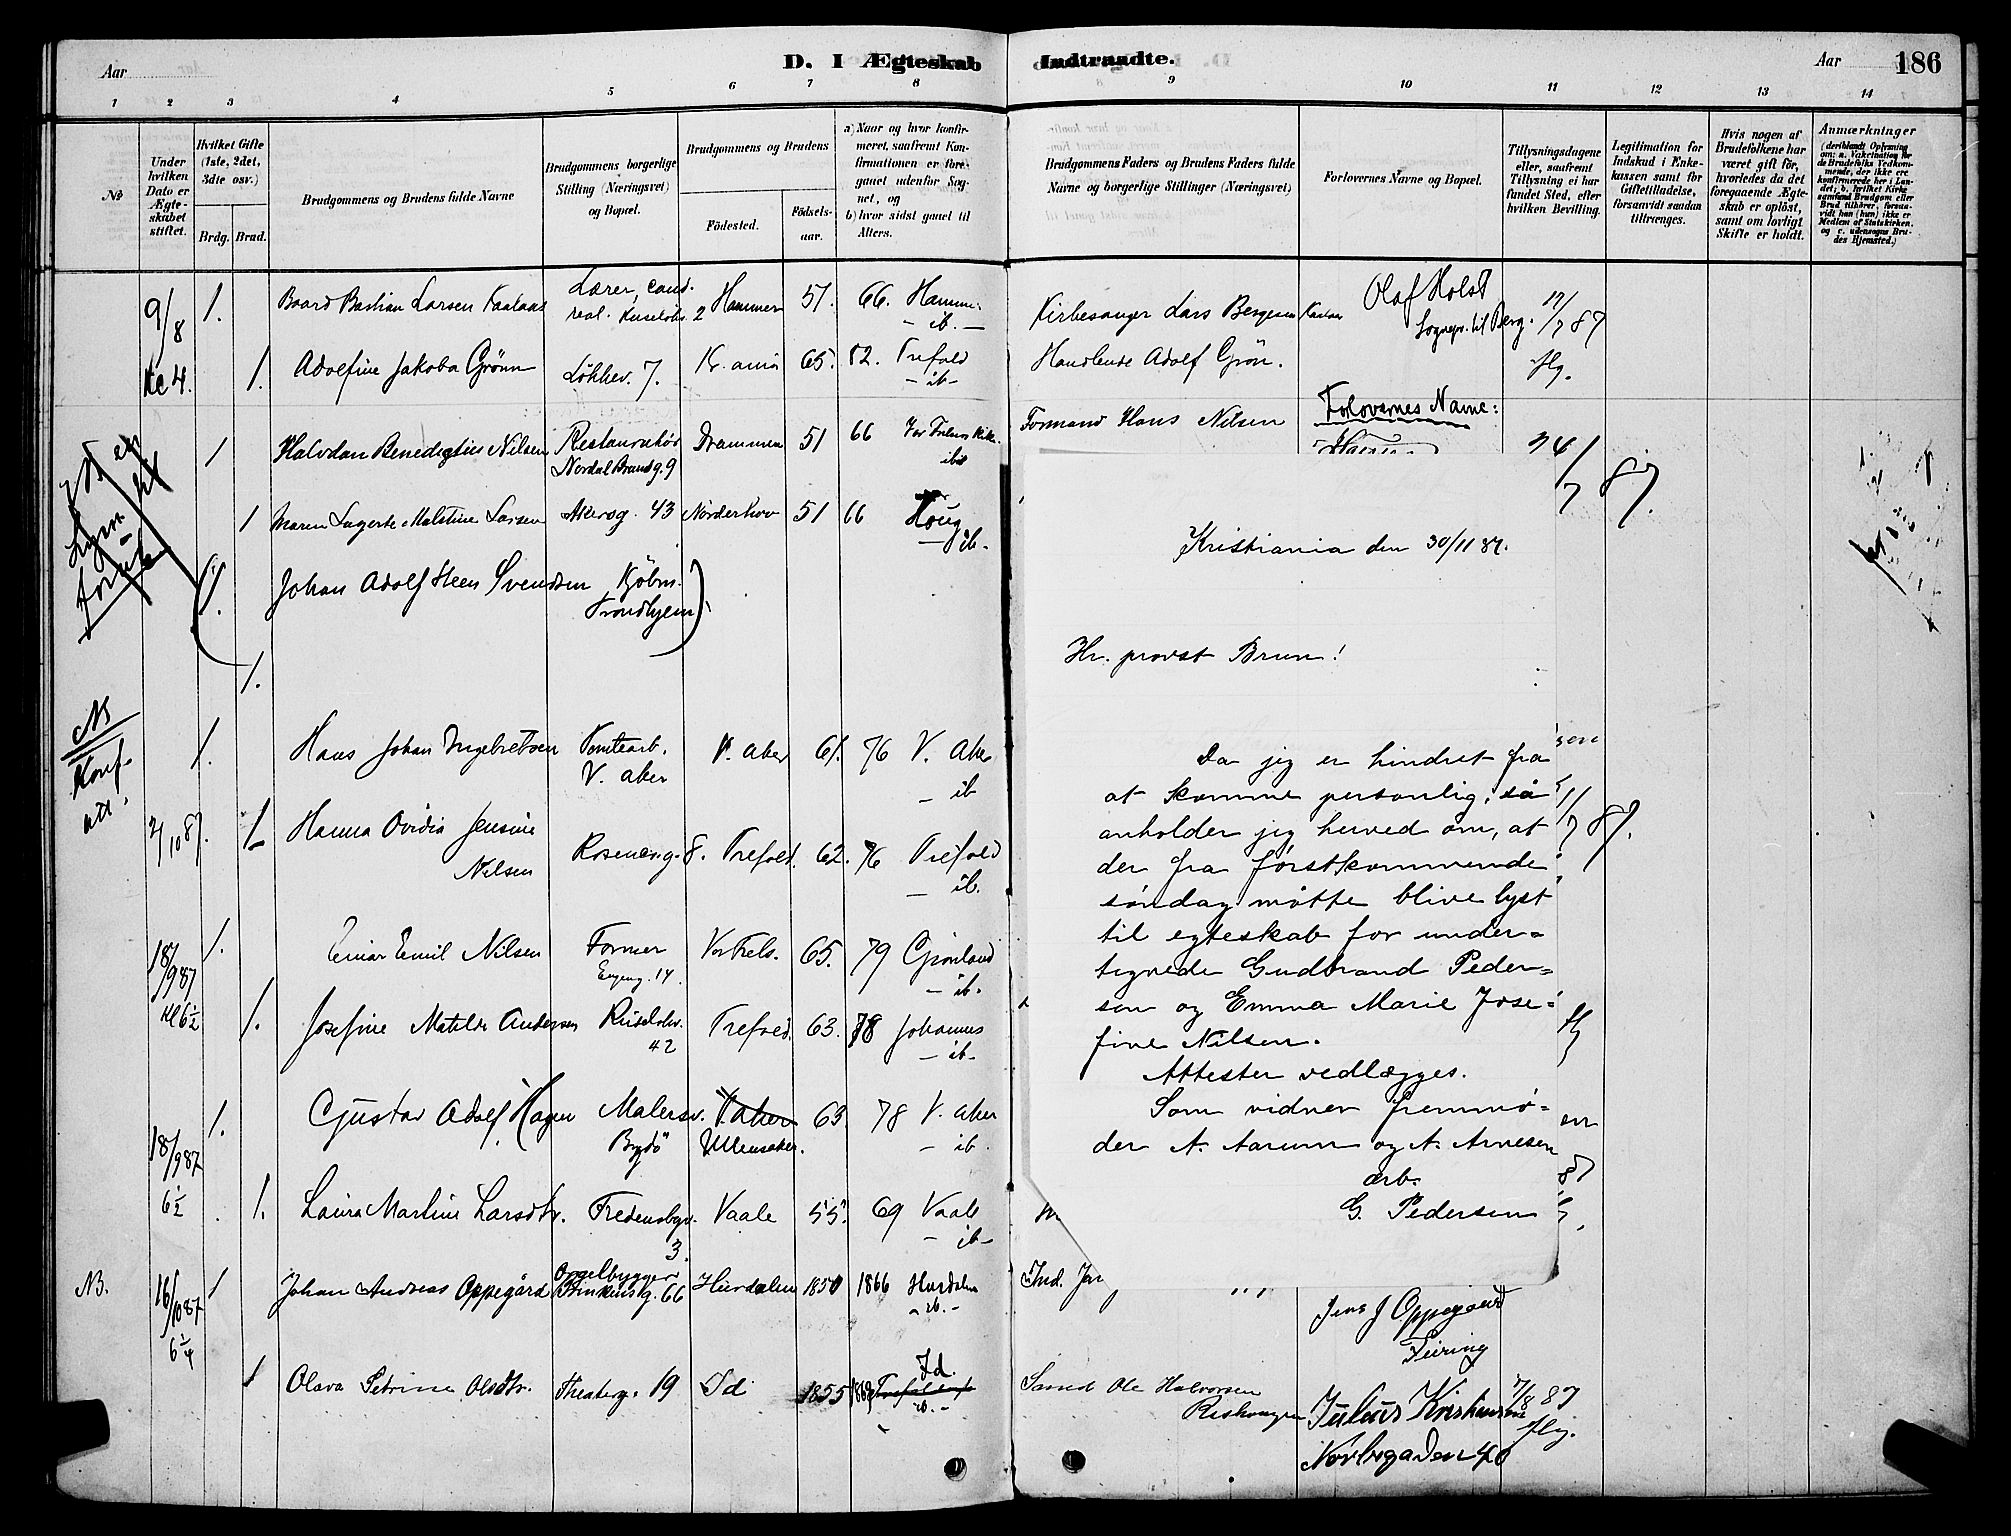 Aar
D. I Ægteskab Indtraadte.
Aar
186
1 2 3 4 5 6 7 8 9 10 11 12 13 14
№
Under hvilken Dato er Ægteskabet stiftet.
Hvilket Gifte (1ste, 2det, 3die osv.)
Brdg. Brud.
Brudgommens og Brudens fulde Navne
Brudgommens borgerlige Stilling (Næringsvei) og Bopæl.
Brudgommens og Brudens
Fødested.
Fødselsaar.
a) Naar og hvor konfirmeret, saafremt Konfirmationen er foregaaet udenfor Sognet, og
b) hvor sidst gaaet til Alters.
Brudgommens Faders og Brudens Faders fulde Navne og borgerlige Stillinger (Næringsvei)
Forlovernes Navne og Bopæl.
Tillysningsdagene eller, saafremt Tillysning ei har fundet Sted, efter hvilken Bevilling.
Legitimation for Indskud i Enkekassen samt for Giftetilladelse, forsaavidt saadan tiltrænges.
Hvis nogen af Brudefolkene har været gift før, hvorledes da det foregaaende Ægteskab er opløst, samt om lovligt Skifte er holdt.
Anmærkninger
(deriblandt Oplysning om: a. Vakcination for de Brudefolks Vedkommende, der ikke ere konfirmerede her i Landet; b. hvilket Kirkesamfund Brudgom eller Brud tilhører, forsaavidt han (hun) ikke er Medlem af Statskirken, og c. udensogns Brudes Hjemsted.)
9/8 1. Baard Bastian Larsen Lærer, cand. real. 2 Hammer 51. 66. Hammer - ib. -
Kirkesanger Lars Bergesen
Olaf Holst
Sognepr. til Berg. 17/7 87
Kl 4. 1. Adolfine Jakoba Grönn Løkkev. 7. Kr.ania 65. 82. Trefold - ib -
Handlende Adolf Grön. Hg.
1 Halvdan Benedigtius Nilsen Restauratør Nordal Brunsg. 9 Drammen 51 66 Vor Frelsers Kirke ibd
Formand Hans Nilsen
Forlovernes Navne:
24/7 87.
1 Maren Lagerte Malstine Larsen Akersg. 43 Norderhov 51 66 Houg - ib -
(1. Johan Adolf Steen Svendsen Kjöbm. Trondhjem)
1.
NB
Konf. att.
1. Hans Johan Ingebretsen Tomtearb. V. Aker V. Aker 61. 76 V. Aker - ib
2/10 87. 1. Hanna Ovidia Jensine Nilsen Rosenkrg. 8. Trefold. 62. 76 Trefold - ib.
11/7 87.
18/9 87 1. Einar Emil Nilsen Former Engeng. 14. Vor Frels. 65. 79 Grönland - ib.
Kl 6½ 1. Josefine Matilde Andersen 42 Trefold. 63. 78 Johannes - ib -
Hg
18/9 87 1. Gustav Adolf Hagen Malersv. Bygdö V. Aker Ullensaker. 63 78 V. Aker - ib.
6½ 1. Laura Martine Larsdtr. Fredensbgv. 3. Vaale 55. 69 Vaale - ib -
NB. 16/10 87 1 Johan Andreas Oppegård Orgelbygger Brinkensg. 66 Hurdalen 1850 1866 Hurdalen - ib. -
Ind.
Jens J Oppegaard
Feiring
6¼ 1 Olava Petrine Olsdtr. Theaterg. 19 Id 1855 1869 Id. - ib. -
Ole Halvorsen
Julius Kristiansen
Nordregaden 40
7/8 87
Hg.
Kristiania den 30/11 87.
Hr. provst Brun!
Da jeg er hindret fra
at komme personlig, så
anholder jeg herved om, at
der fra førstkommende
søndag måtte blive lyst
til egteskab for under=
tegnede Gudbrand Peder=
sen og Emma Marie Jose=
fine Nilsen.
Attester vedlægges.
Som vidner fremmø=
der A. Aarum og A. Arnesen
arb.
G. Pedersen